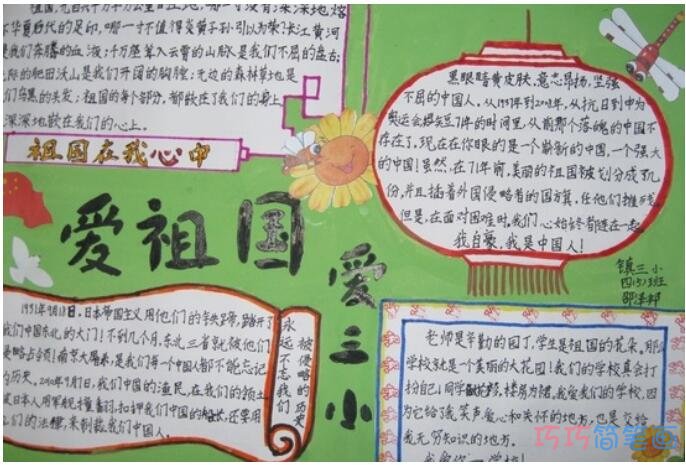 不华夏后代的足印，哪一寸不值得炎黄子孙引以为荣？长江黄河
是我们奔腾的血液；千万座耸入云霄的山脉是我们不屈的
际的肥田沃山是我们开阔的胸膛；无边的森林草地是
们乌黑的头发；祖国的每个部分，都欹在了我们的身上
深深地欹在我们的心上。
祖国在我心中
爱祖国
爱三小
黑眼睛黄皮肤，意志昂扬，坚强
不屈的中国人。从1937年到2008年，从抗日到申为
奥运会
71年的时间里，从前那个落魄的中国不
存在了，现在在你眼的是一个崭新的中国，一个强大
的中国！虽然，在71年前，美丽的祖国被划分成了几
份，并且插着外国侵略者的国旗，任他们
但是，在面对困难时，我们心始终都连在一起
我自豪，我是中国人！
镇三小
四(5)班
1931年9月18日，日本帝国主义用他们的铁蹄，踏开了
我们中国东北的大门！不到几个月，东北三省就被他们
侵略占领！南京大屠杀，是我们每一个中国人都不能忘记
的历史。2010年9月7日，我们中国的渔民，在我们的领土
被日本人用军舰撞翻，扣押我们中国的船长，还要用
他们的法律，来制裁我们中国人。
永远不忘我们
被侵略的历史
老师是辛勤的园丁，学生是祖国的花朵。那么
学校就是一个美丽的大花园！我们的学校真会打
扮自己！同学
楼房为裙。我爱我们的学校，因
为它给了我笑声爱心和关怀的地方，也是
我无穷知识的地方。
巧巧简笔画